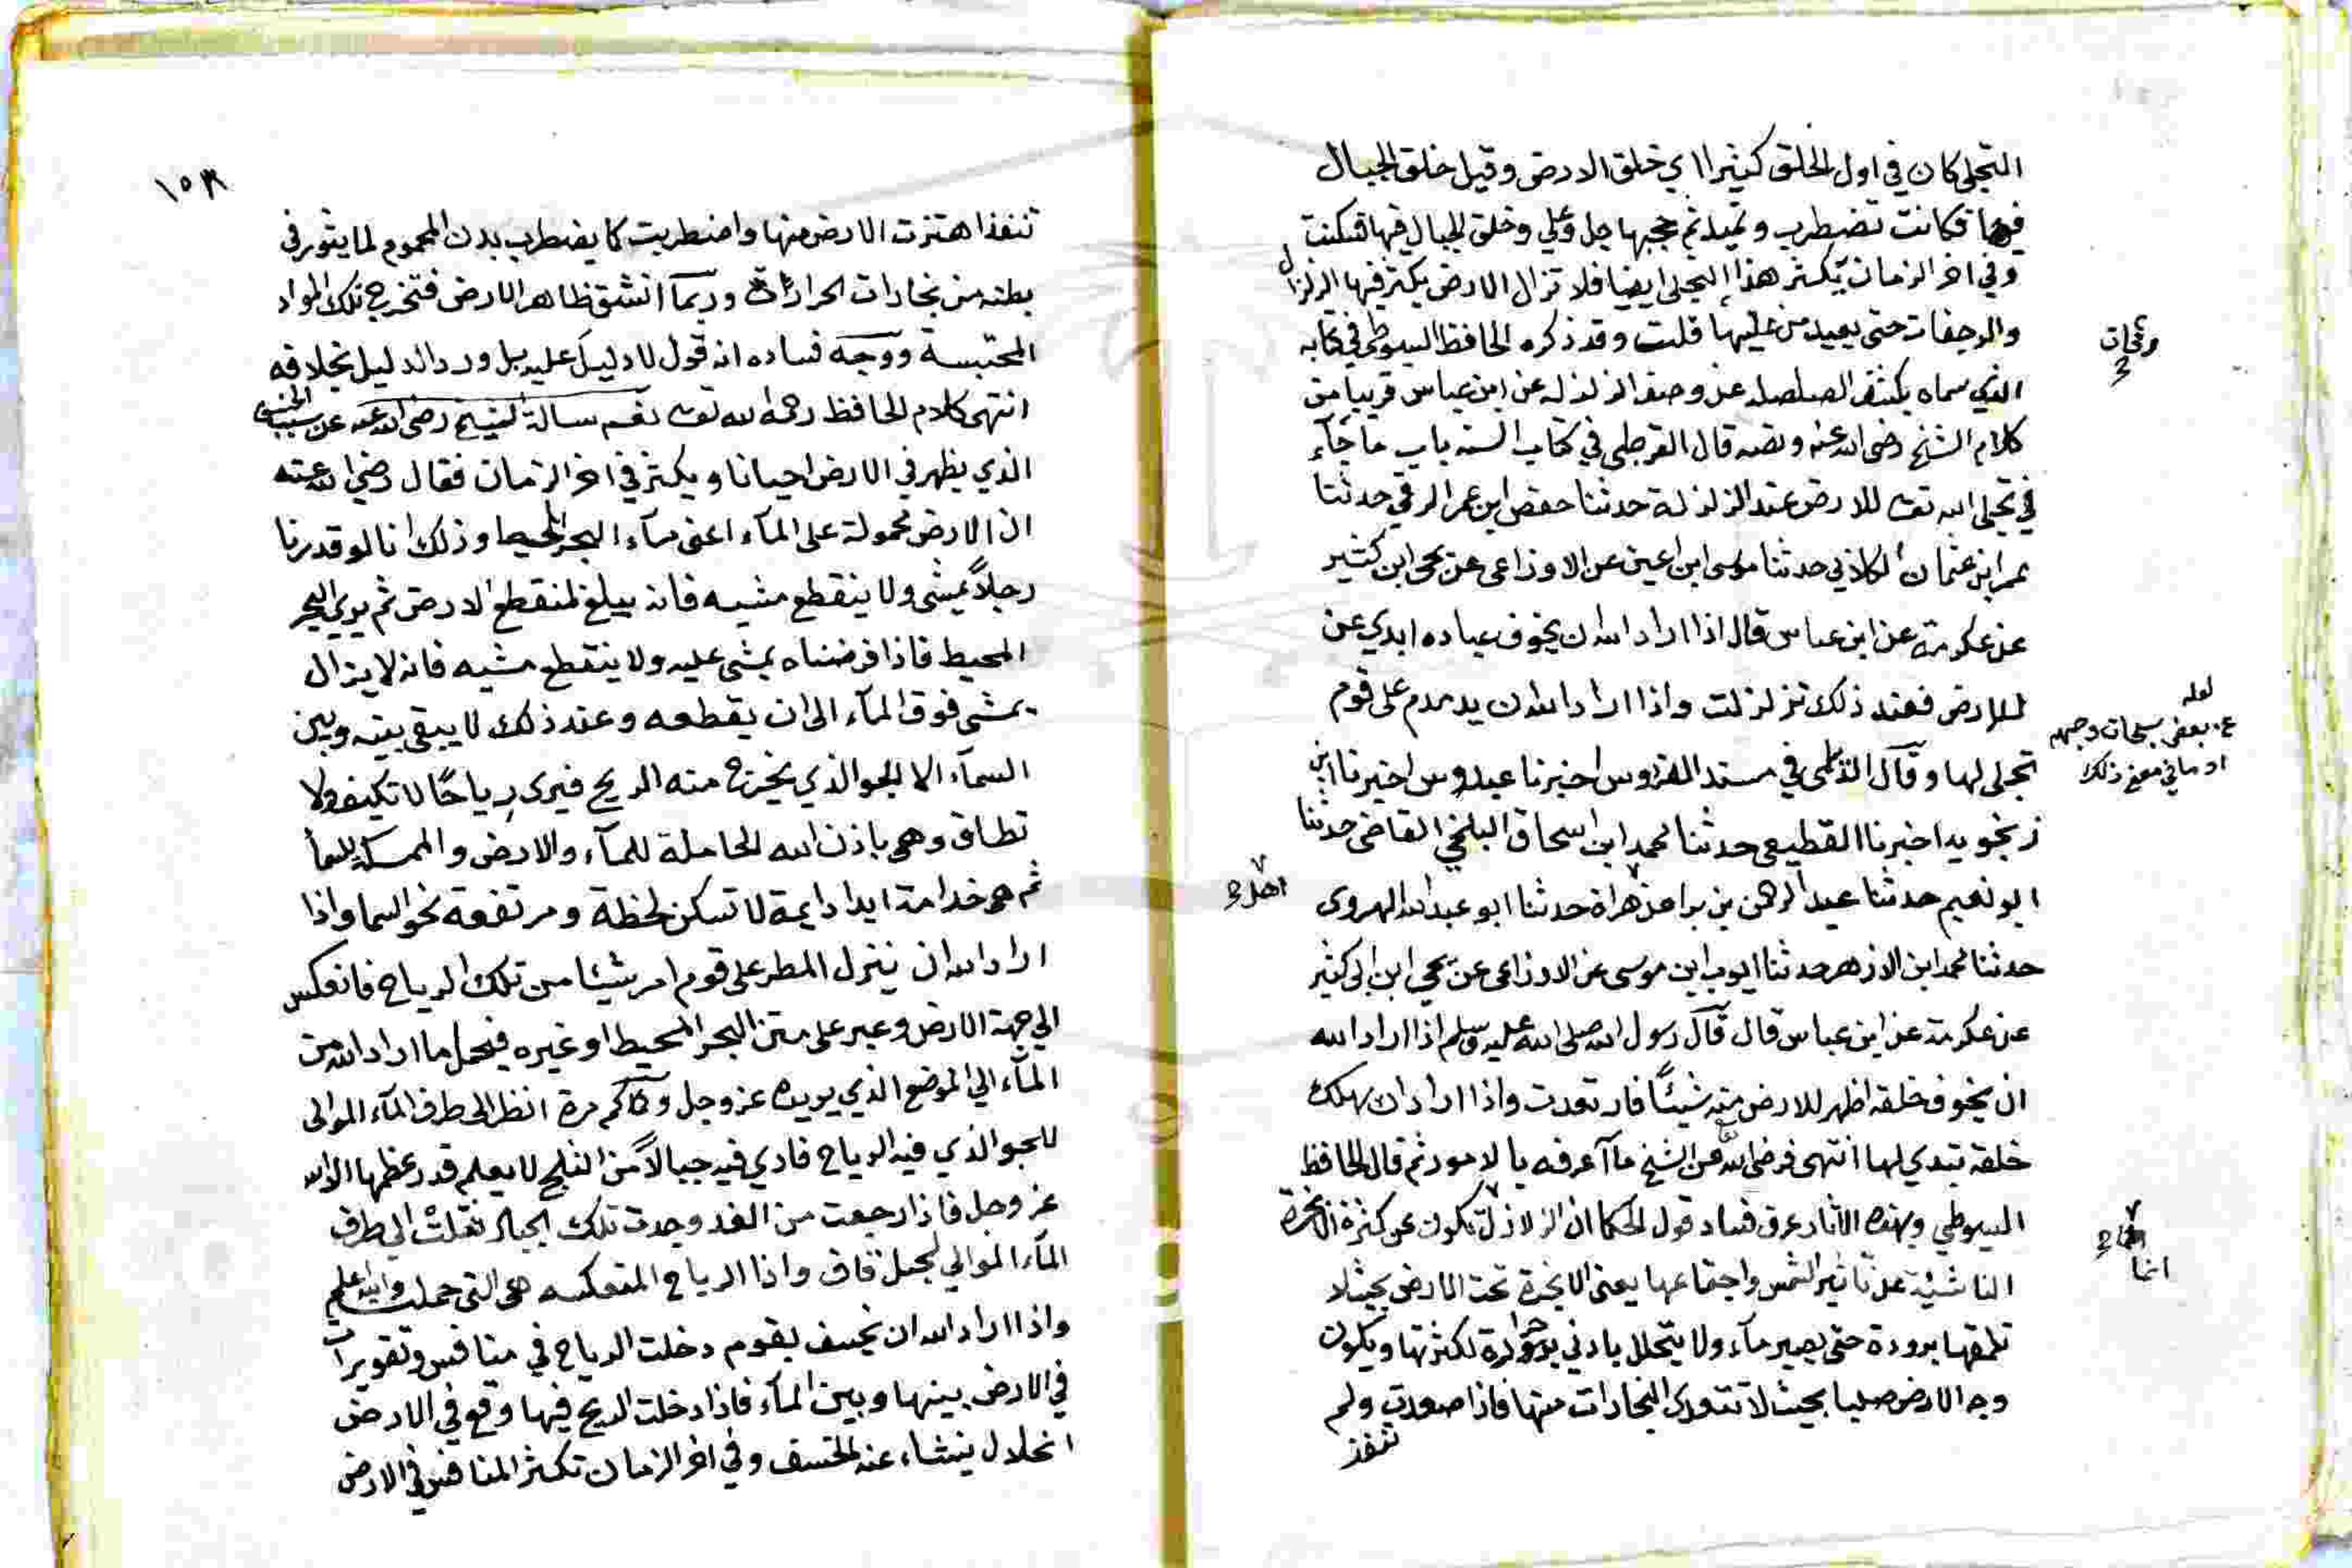 التجلي كان في اول الخلق كثيرا اي خلق الارض وقيل خلق الجبال
فيها فكانت تضطرب وتميد ثم حجبها جل وعلي وخلق الجبال فيها فسكنت
وفي اخر الزمان يكثر هذا التجلي ايضا فلا تزال الارض يكثر فيها الزلزال
والرجفات حتى يبيد من عليها قلت وقد ذكره الحافظ السيوطي في كتابه
الذي سماه بكشف الصلصله عن وصف الزلزله عن ابن عباس قريبا من
كلام الشيخ رضي الله عنه ونصه قال القرطبي في كتاب السنه باب ما جآء
في تجلي الله تعـ للارض عند الزلزلة حدثنا حفص ابن عمر الرقي حدثنا
عمر ابن عثمان الكلابي حدثنا موسى ابن اعين عن الاوزاعي عن يحي ابن كثير
عن عكرمة عن ابن عباس قال اذا اراد الله ان يخوف عباده ابدي عن
للارض فعند ذلك تزلزلت واذا اراد الله ان يدمدم على قوم
لعله
عن بعض سبحات وجهه
او ما في معنى ذلك
تجلى لها وقال الديلمي في مسند الفردوس اخبرنا عبدوس اخبرنا ابن
زنجويه اخبرنا القطيعي حدثنا محمد ابن اسحاق البلخي القاضي حدثنا
ابو نعيم حدثنا عبد الرحمن بن هراة حدثنا ابو عبد الله الهروي
اهل
حدثنا محمد ابن الازهر حدثنا ايوب ابن موسى عن الاوزاعي عن يحي ابن ابي كثير
عن عكرمة عن ابن عباس قال قال رسول الله صلى الله عليه وسلم اذا اراد الله
ان يخوف خلقه اظهر للارض منه شيئًا فارتعدت واذا اراد ان يهلك
خلقه تبدي لها انتهى فرضي الله عن الشيخ ما اعرفه بالامور ثم قال الحافظ
السيوطي وبهذه الاثار عرف فساد قول الحكما ان الزلازل تكون عن كثرة الابخرة
انما
الناشئة عن تاثير الشمس واجتماعها يعنى الابخرة تحت الارض بحيث لا
تقمعها برودة حتى يصير مآء ولا يتحلل بادني حرارة لكثرتها ويكون
وجه الارض صلبا بحيث لا تنفذ البخارات منها فاذا صعدت ولم
تنفذ
١٥٣
تنفذ اهتزت الارض منها واضطربت كما يضطرب بدن المحموم لما يثور في
بطنه من بخارات الحرارات وربما انشق ظاهر الارض فتخرج تلك المواد
المحتبسة ووجه فساده انه قول لا دليل عليه بل ورد الدليل بخلافه
انتهى كلام الحافظ رحمه الله تعـ نعم سالت الشيخ رضي الله عنه عن سبب الخسف
الذي يظهر في الارض احيانا ويكثر في اخر الزمان فقال رضي الله عنه
ان الارض محمولة على المآء اعني مآء البحر المحيط وذلك انا لو قدرنا
رجلاً يمشي ولا ينقطع مشيه فانه يبلغ لمنقطع الارض ثم يري البحر
المحيط فاذا فرضناه يمشي عليه ولا ينقطع مشيه فانه لا يزال
يمشي فوق المآء الى ان يقطعه وعند ذلك لا يبقى بينه وبين
السمآء الا الجو الذي يخرج منه الريح فيرى رياحًا لا تكيف ولا
تطاق وهي باذن الله الحاملة للمآء والارض والممسكة للسما
ثم هي خدامة ابدا دايمة لا تسكن لحظة ومرتفعة نحو السما واذا
اراد الله ان ينزل المطر على قوم امر شيئا من تلك الرياح فانعكس
الي جهة الارض وعبر على متن البحر المحيط او غيره فيحمل ما اراد الله من
المآء الي الموضع الذي يريده عز وجل وكم مرة انظر الى طرف المآء الموالى
للجو الذي فيه الرياح فاري فيه جبالاً من الثلج لا يعلم قدر عظمها الا الله
عز وجل فاذا رجعت من الغد وجدت تلك الجبال نقلت الي طرف
المآء الموالي لجبل قاف واذا الرياح المنعكسه هي التي حملت والله اعلم
واذا اراد الله ان يخسف بقوم دخلت الرياح في منافس وتقويرات
في الارض بينها وبين المآء فاذا دخلت الريح فيها وقع في الارض
انحلال ينشاء عنه الخسف وفي اخر الزمان تكثر المنافس في الارض